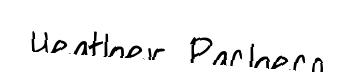 Heather Pacheco